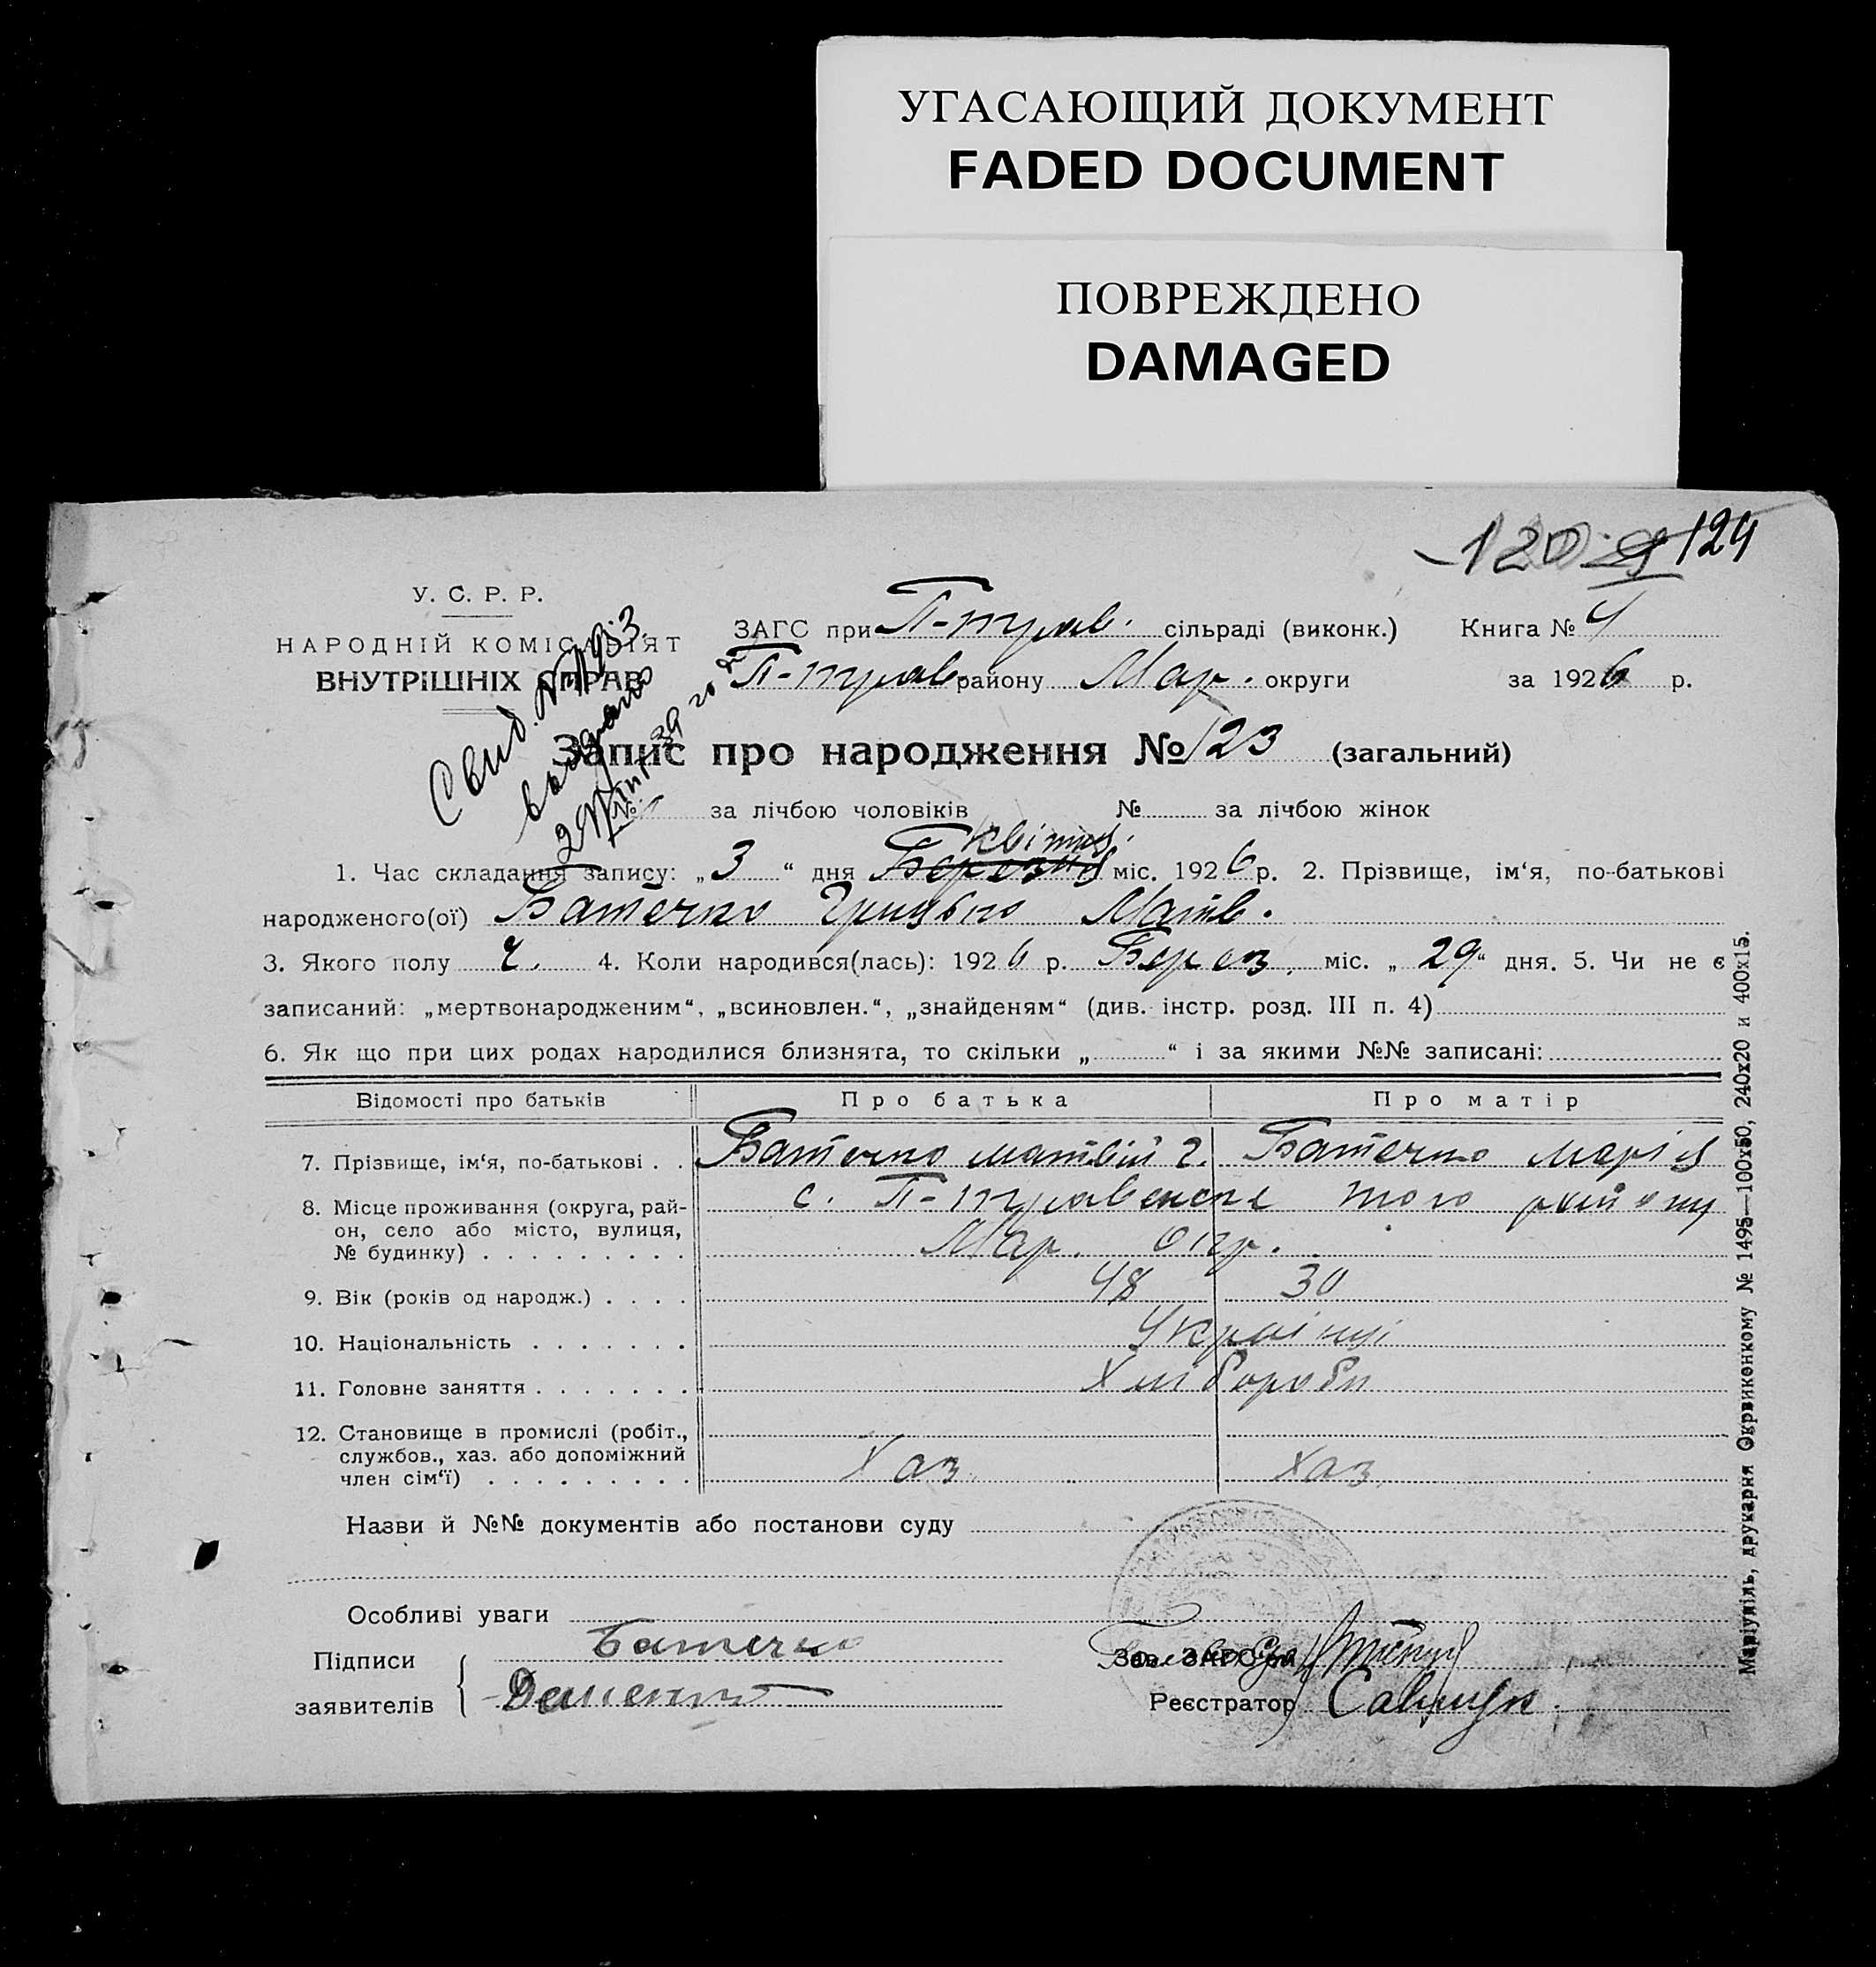 УГАСАЮЩИЙ ДОКУМЕНТ
FADED DOCUMENT
ПОВРЕЖДЕНО
DAMAGED
120 124
У. С. Р. Р.
НАРОДНІЙ КОМІСАРІЯТ
ВНУТРІШНІХ СПРАВ
Свид.
выдано
39 года
ЗАГС при П-трав. сільраді (виконк.) Книга № 4
П-трав. району Мар. округи за 1926 р.
Запис про народження № 123 (загальний)
№ за лічбою чоловіків № за лічбою жінок
Квітня
1. Час складання запису: „3“ дня Березня міс. 1926 р. 2. Прізвище, ім‘я, по-батькові
народженого(ої) Батечко Грицько Матв.
3. Якого полу ч. 4. Коли народився(лась): 1926 р. Берез. міс. „29“ дня. 5. Чи не є
записаний: „мертвонародженим“, „всиновлен.“, „знайденям“ (див. інстр. розд. III п. 4)
6. Як що при цих родах народилися близнята, то скільки „ “ і за якими №№ записані:
Відомості про батьків Про батька Про матір
7. Прізвище, ім‘я, по-батькові . . Батечко Матвій Г. Батечко Марія
8. Місце проживання (округа, рай- с. П-травенське того району
он, село або місто, вулиця,
№ будинку) . . . . . . . . . Мар. окр.
9. Вік (років од народж.) . . . . 48 30
10. Національність . . . . . . . Українці
11. Головне заняття . . . . . . . Хлібороби
12. Становище в промислі (робіт.,
службов., хаз. або допоміжний
член сім‘ї) . . . . . . . . . Хаз. Хаз.
Назви й №№ документів або постанови суду
Особливі уваги
Підписи Батечко
заявителів
Зав. ЗАГС‘ом
Реєстратор Савчук
Маріупіль, друкарня Окрвиконкому № 1495—100x150, 240x20 и 400x15.